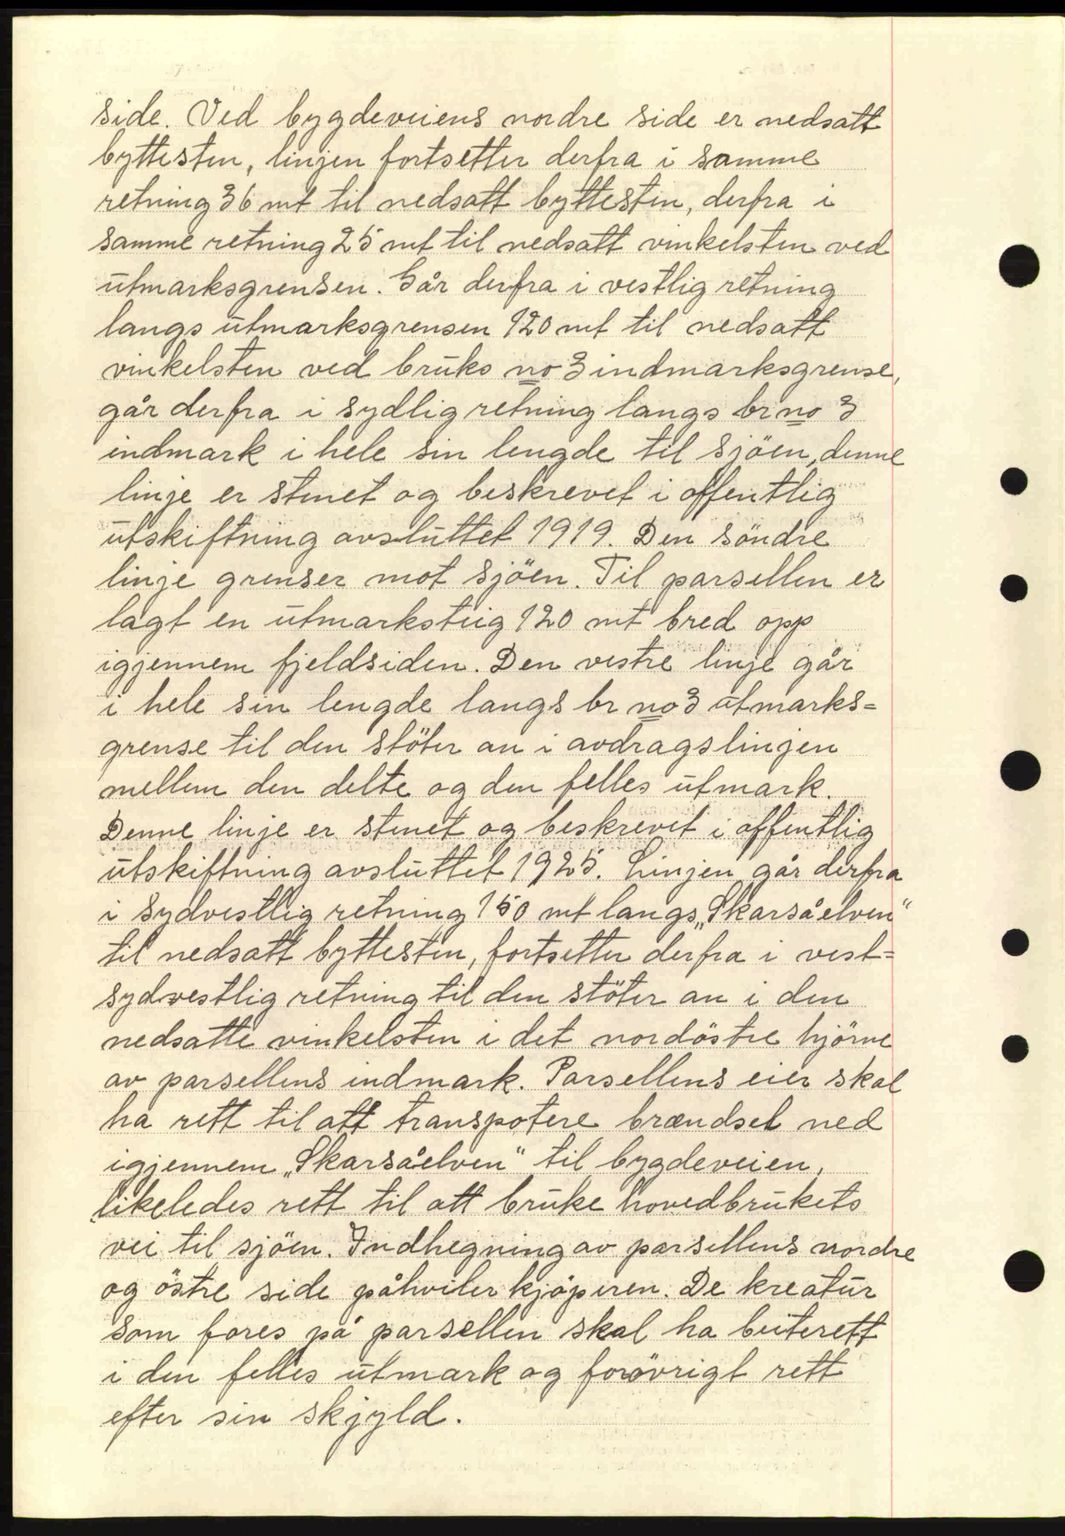 side. Ved bygdeveiens nordre side er nedsatt
byttesten, linjen fortsetter derfra i samme
retning 36 mt til nedsatt byttesten, derfra i
samme retning 25 mt til nedsatt vinkelsten ved
utmarksgrensen. Går derfra i vestlig retning
langs utmarksgrensen 120 mt til nedsatt
vinkelsten ved bruks no 3 indmarksgrense,
går derfra i sydlig retning langs br no 3
indmark i hele sin lengde til sjöen, denne
linje er stenet og beskrevet i offentlig
utskiftning avsluttet 1919. Den söndre
linje grenser mot sjöen. Til parsellen er
lagt en utmarksteig 120 mt bred opp
igjennem fjeldsiden. Den vestre linje går
i hele sin lengde langs br no 3 utmarks=
grense til den stöter an i avdragslinjen
mellem den delte og den felles utmark.
Denne linje er stenet og beskrevet i offentlig
utskiftning avsluttet 1925. Linjen går derfra
i sydvestlig retning 150 mt langs „Skarsåelven“
til nedsatt byttesten, fortsetter derfra i vest=
sydvestlig retning til den stöter an i den
nedsatte vinkelsten i det nordöstre hjörne
av parsellens indmark. Parsellens eier skal
ha rett til att transpotere brændsel ned
igjennem „Skarsåelven“ til bygdeveien,
likeledes rett til att bruke hovedbrukets
vei til sjöen. Indhegning av parsellens nordre
og östre side påhviler kjöperen. De kreatur
som fores på parsellen skal ha beiterett
i den felles utmark og forövrigt rett
efter sin skjyld.